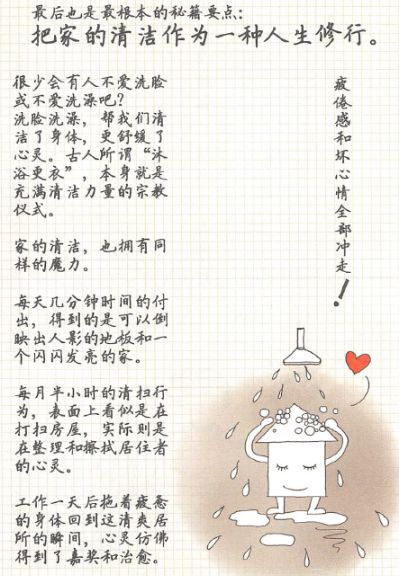 最后也是最根本的秘籍要点:
把家的清洁作为一种人生修行。
很少会有人不爱洗脸
或不爱洗澡吧?
洗脸洗澡，帮我们清
洁了身体，更舒缓了
心灵。古人所谓“沐
浴更衣”，本身就是
充满清洁力量的宗教
仪式。
家的清洁，也拥有同
样的魔力。
每天几分钟时间的付
出，得到的是可以倒
映出人影的地板和一
个闪闪发亮的家。
每月半小时的清扫行
为，表面上看似是在
打扫房屋，实际则是
在整理和擦拭居住者
的心灵。
工作一天后拖着疲惫
的身体回到这清爽居
所的瞬间，心灵仿佛
得到了嘉奖和治愈。
疲倦感和坏心情全部冲走！